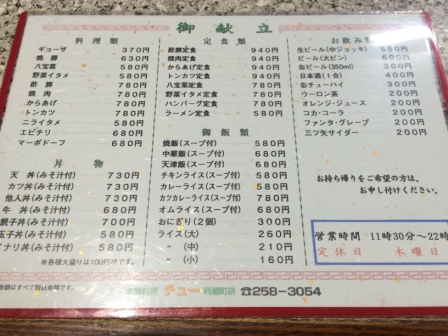 御献立
料理類
ギョーザ 370円
焼豚 630円
八宝菜 780円
野菜イタメ 580円
酢豚 780円
焼肉 780円
からあげ 780円
トンカツ 780円
ニライタメ 580円
エビチリ 680円
マーボドーフ 680円
丼物
天丼(みそ汁付) 730円
カツ丼(みそ汁付) 730円
他人丼(みそ汁付) 730円
牛丼(みそ汁付) 680円
親子丼(みそ汁付) 700円
玉子丼(みそ汁付) 580円
イナリ丼(みそ汁付) 580円
※各種大盛りは100円増です。
定食類
酢豚定食 940円
焼肉定食 940円
からあげ定食 940円
トンカツ定食 940円
八宝菜定食 780円
野菜イタメ定食 780円
ハンバーグ定食 780円
ラーメン定食 580円
御飯類
焼飯(スープ付) 580円
中華飯(スープ付) 680円
天津飯(スープ付) 680円
チキンライス(スープ付) 580円
カレーライス(スープ付) 580円
カツカレーライス(スープ付) 780円
オムライス(スープ付) 680円
おにぎり(2個) 300円
ライス(大) 260円
〃 (中) 210円
〃 (小) 160円
お飲み物
生ビール(中ジョッキ) 550円
ビール(大ビン) 600円
缶ビール(350ml) 300円
日本酒(1合) 400円
缶チューハイ 300円
ウーロン茶 200円
オレンジ・ジュース 200円
コカ・コーラ 200円
ファンタ・グレープ 200円
三ツ矢サイダー 200円
お持ち帰りをご希望の方は、
お申し付けください。
営業時間 11時30分〜22時
定休日 木曜日
金額はすべて税込金額です。
チュー 利屋町店 ☎258-3054